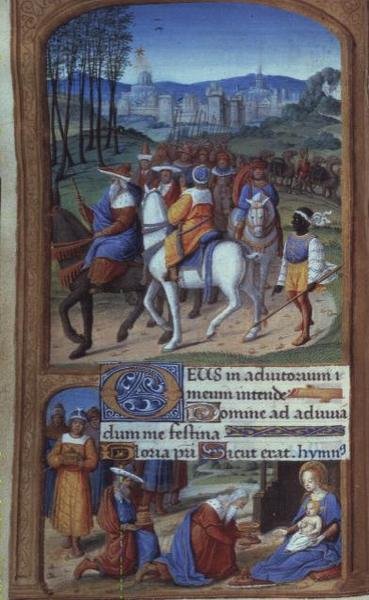 DEUS in adiutorium i
meum intende
Domine ad adiuua
dum me festina
Gloria pri Sicut erat. hymnꝰ